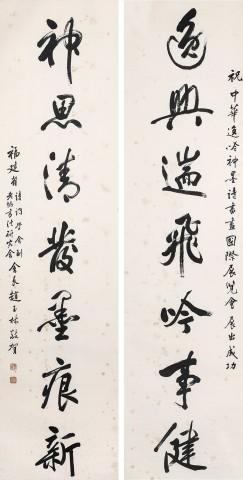 祝中華逸吟神墨詩書畫國際展覽會展出成功
逸興遄飛吟事健
神思清發墨痕新
福建省詩詞學會副老年書法研究會會長趙玉林敬賀